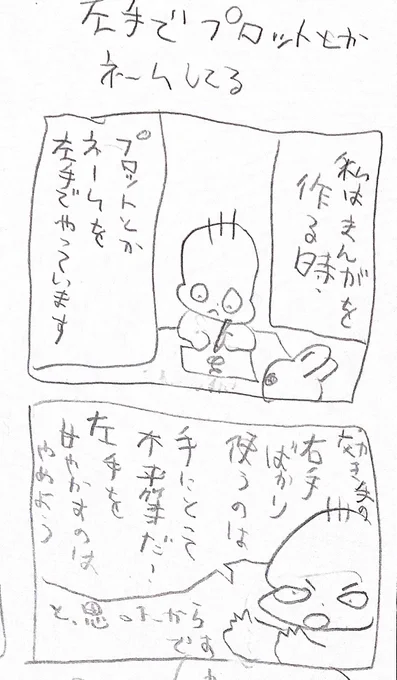 左手でプロットとか
ネームしてる
私はまんがを
作る時、
プロットとか
ネームを
左手でやっています
効き手の
右手
ばかり
使うのは
手にとって
不平等だ!
左手を
甘やかすのは
やめよう
と、思ったから
です